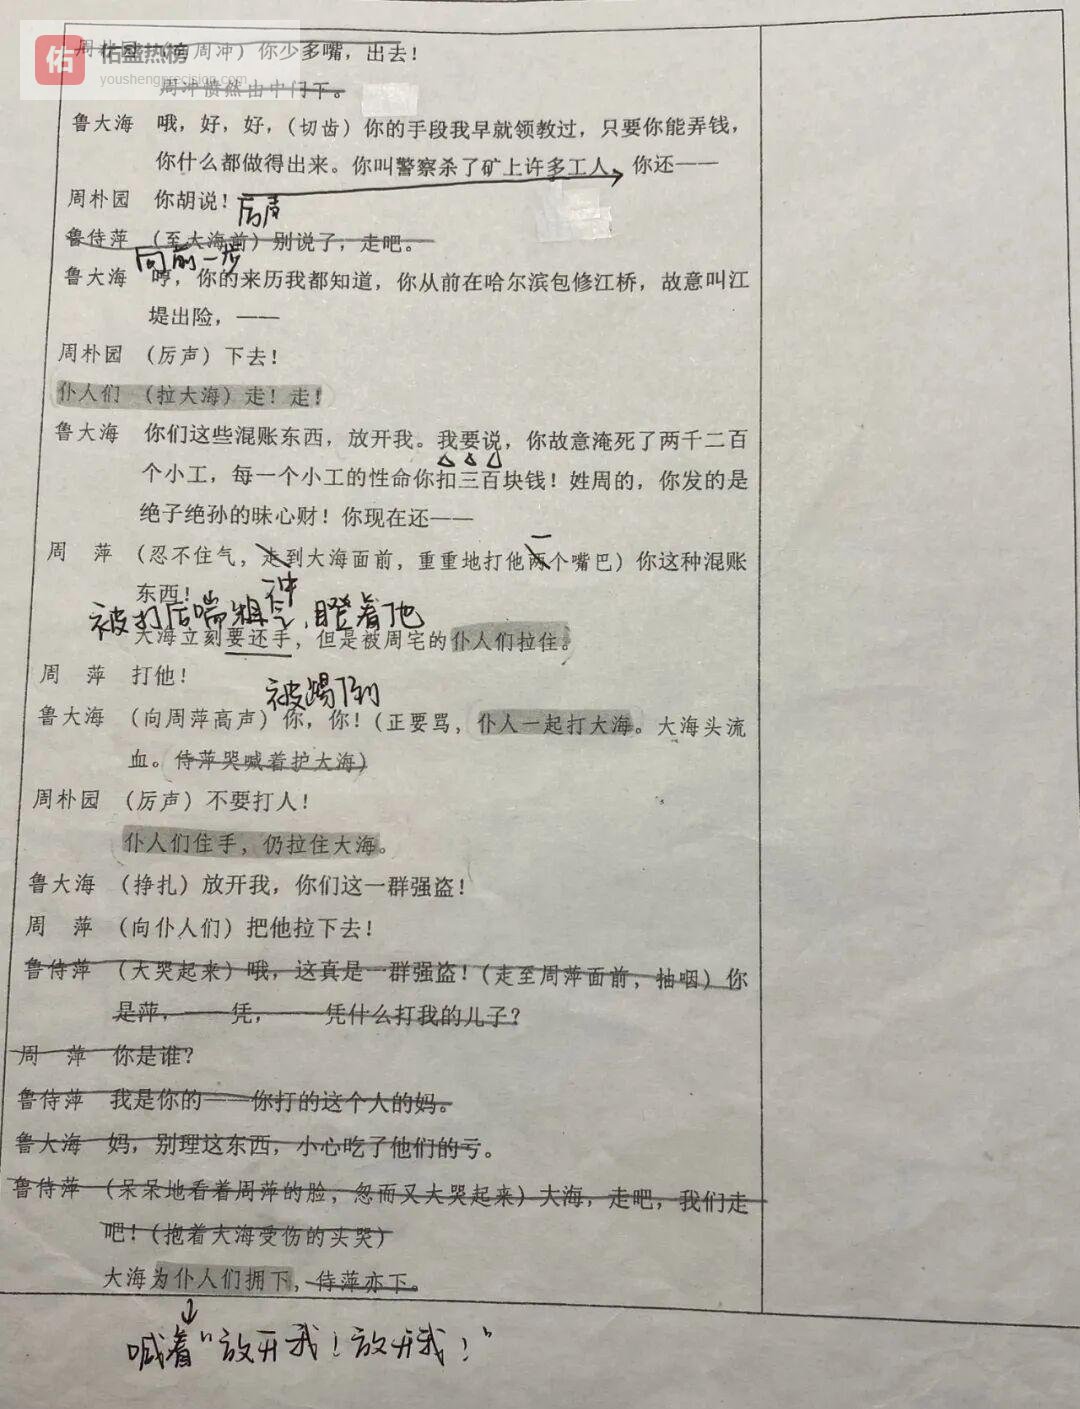 周朴园 （向周冲）你少多嘴，出去！
佑 佑盛热榜
youshengprecision.com
周冲愤然由中门下。
鲁大海 哦，好，好，（切齿）你的手段我早就领教过，只要你能弄钱，
你什么都做得出来。你叫警察杀了矿上许多工人，你还——
周朴园 你胡说！
厉声
鲁侍萍 （至大海前）别说了，走吧。
向前一步
鲁大海 哼，你的来历我都知道，你从前在哈尔滨包修江桥，故意叫江
堤出险，——
周朴园 （厉声）下去！
仆人们 （拉大海）走！走！
鲁大海 你们这些混账东西，放开我。我要说，你故意淹死了两千二百
个小工，每一个小工的性命你扣三百块钱！姓周的，你发的是
绝子绝孙的昧心财！你现在还——
一
周 萍 （忍不住气，走到大海面前，重重地打他两个嘴巴）你这种混账
东西！
冲
被打后喘粗气，瞪着他
大海立刻要还手，但是被周宅的仆人们拉住。
周 萍 打他！
被踢倒
鲁大海 （向周萍高声）你，你！（正要骂，仆人一起打大海。大海头流
血。侍萍哭喊着护大海）
周朴园 （厉声）不要打人！
仆人们住手，仍拉住大海。
鲁大海 （挣扎）放开我，你们这一群强盗！
周 萍 （向仆人们）把他拉下去！
鲁侍萍 （大哭起来）哦，这真是一群强盗！（走至周萍面前，抽咽）你
是萍，——凭，——凭什么打我的儿子？
周 萍 你是谁？
鲁侍萍 我是你的——你打的这个人的妈。
鲁大海 妈，别理这东西，小心吃了他们的亏。
鲁侍萍 （呆呆地看着周萍的脸，忽而又大哭起来）大海，走吧，我们走
吧！（抱着大海受伤的头哭）
大海为仆人们拥下，侍萍亦下。
喊着“放开我！放开我！”